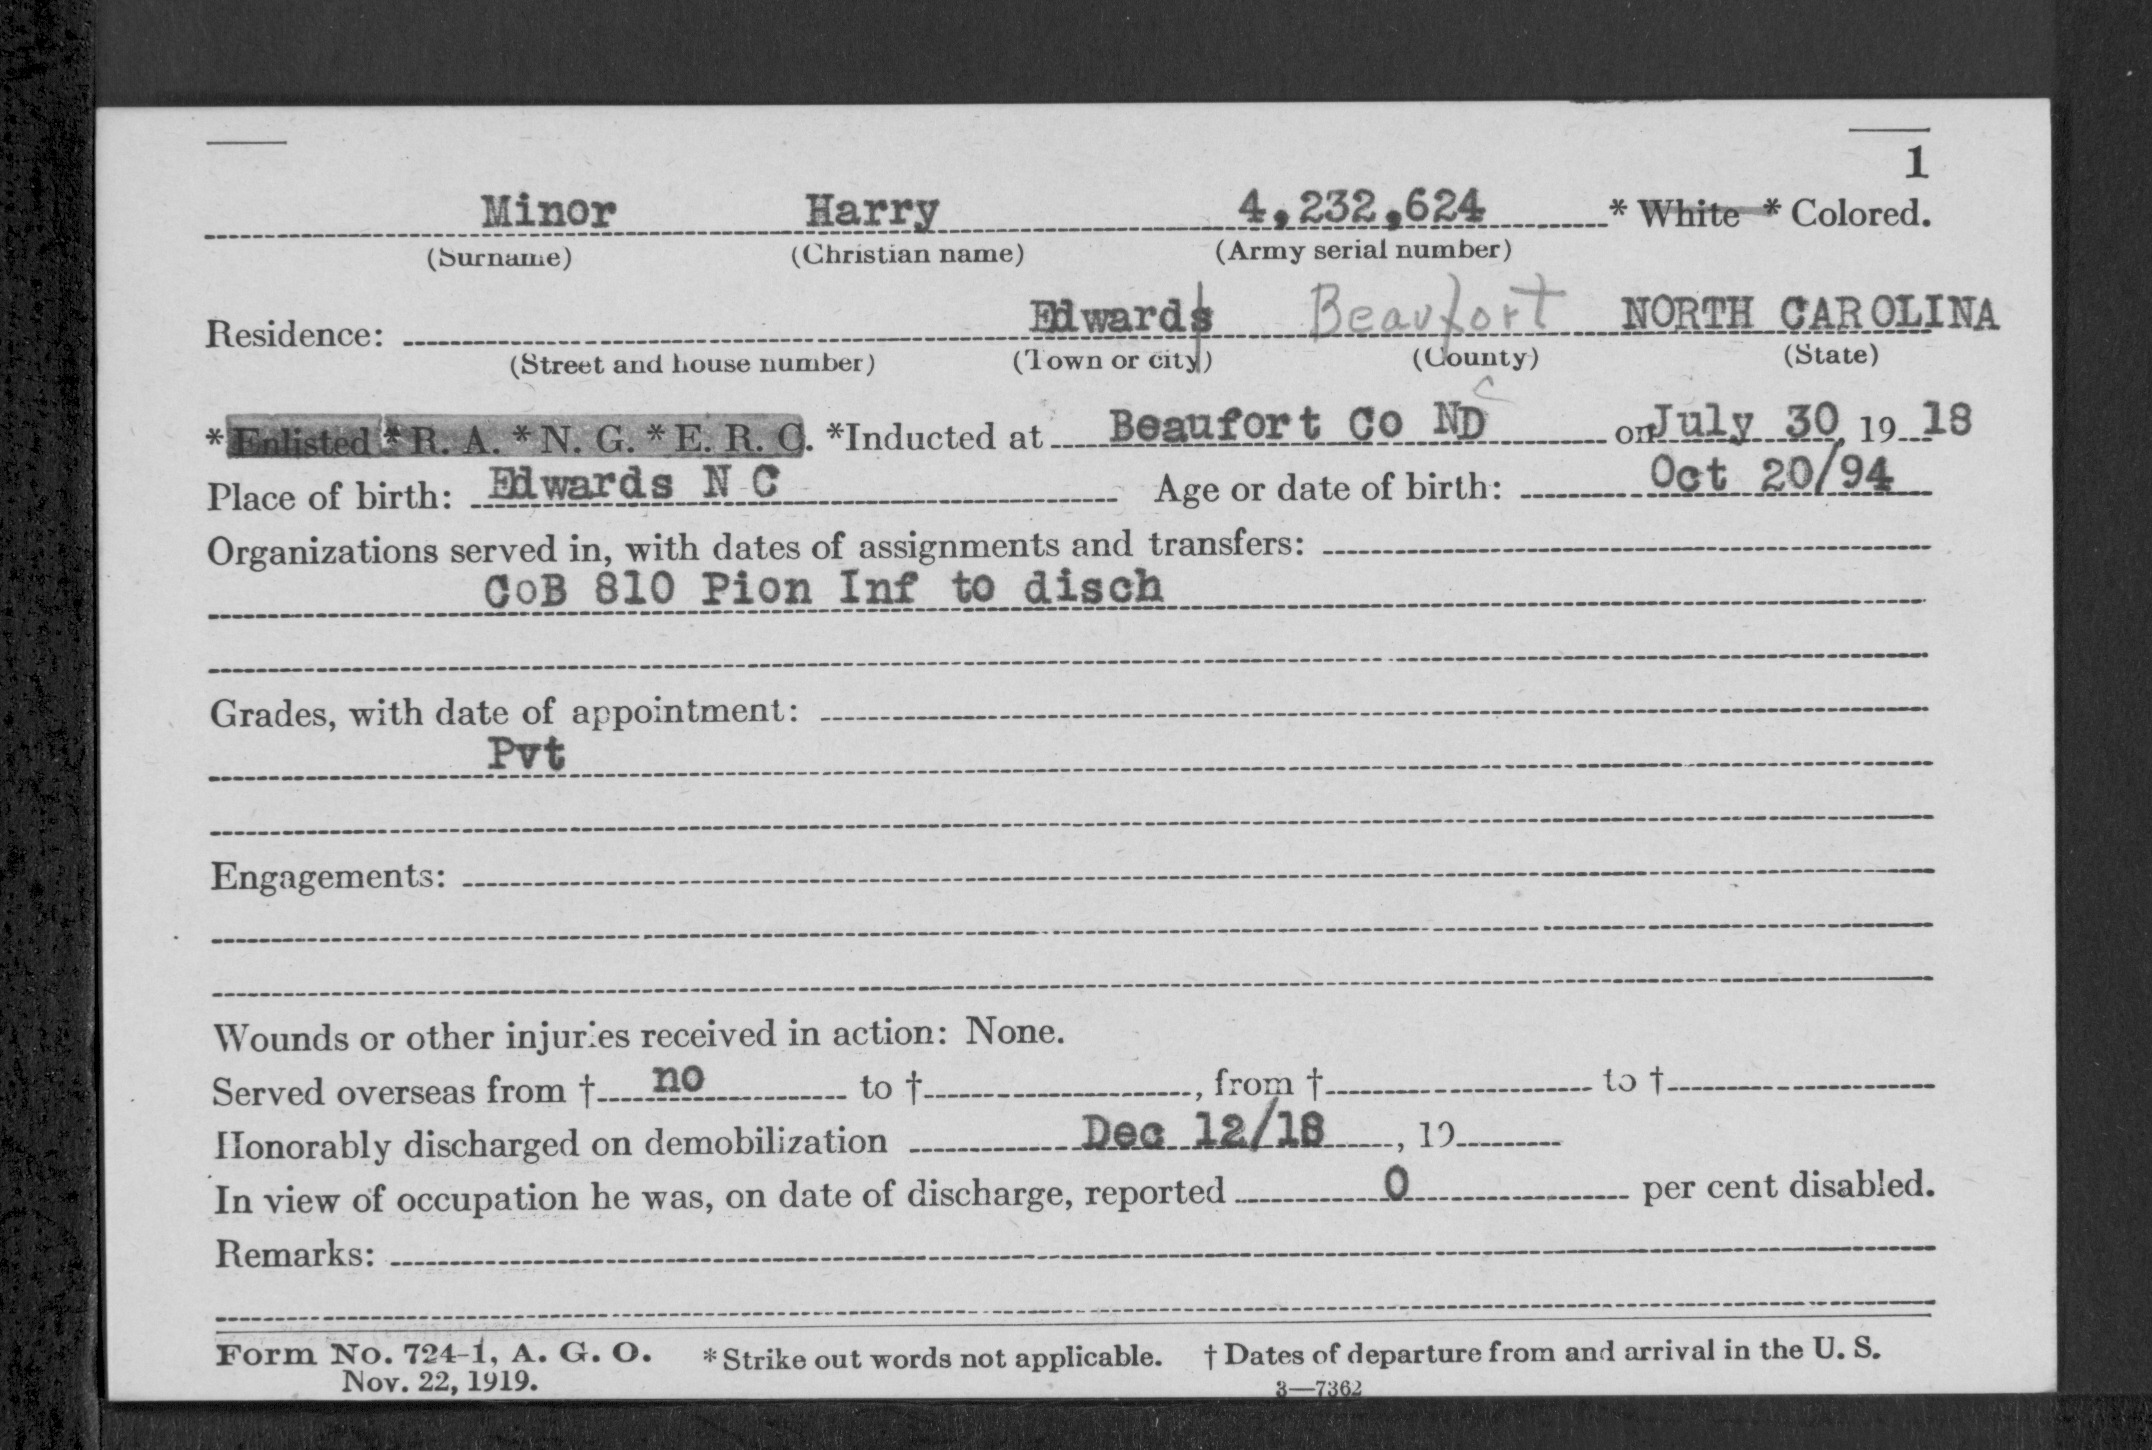 1
Minor Harry 4,232,624 * White * Colored.
(Surname) (Christian name) (Army serial number)
Residence: Edwards Beaufort NORTH CAROLINA
(Street and house number) (Town or city) (County) (State)
*Enlisted *R. A. *N. G. *E. R. C. *Inducted at Beaufort Co ND C on July 30, 19 18
Place of birth: Edwards N C Age or date of birth: Oct 20/94
Organizations served in, with dates of assignments and transfers:
CoB 810 Pion Inf to disch
Grades, with date of appointment:
Pvt
Engagements:
Wounds or other injuries received in action: None.
Served overseas from † no to †, from † to †
Honorably discharged on demobilization Dec 12/18, 19
In view of occupation he was, on date of discharge, reported 0 per cent disabled.
Remarks:
Form No. 724-1, A. G. O. *Strike out words not applicable. † Dates of departure from and arrival in the U. S.
Nov. 22, 1919. 3—7362